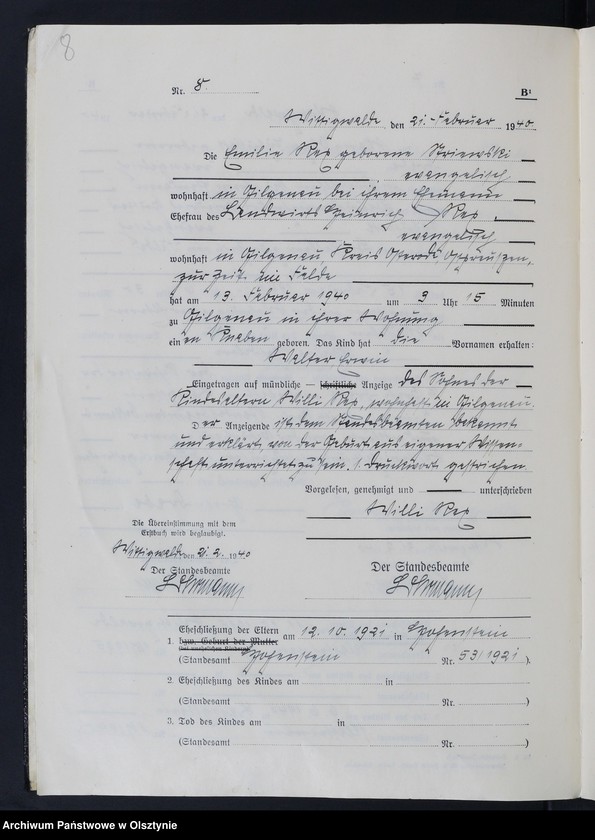 8
Nr. 8. B¹
Wittigwalde, den 21. Februar 1940
Die Emilie Rex geborene Striewski
evangelisch
wohnhaft in Gilgenau bei ihrem Ehemann
Ehefrau des Landwirts Heinrich Rex,
evangelisch
wohnhaft in Gilgenau, Kreis Osterode Ostpreußen,
zur Zeit im Felde
hat am 13. Februar 1940 um 9 Uhr 15 Minuten
zu Gilgenau in ihrer Wohnung
einen Knaben geboren. Das Kind hat die Vornamen erhalten:
Walter Erwin
Eingetragen auf mündliche — schriftliche Anzeige des Sohnes der
Kindeseltern Willi Rex, wohnhaft in Gilgenau.
Der Anzeigende ist dem Standesbeamten bekannt
und erklärt, von der Geburt aus eigener Wissen-
schaft unterrichtet zu sein. 1 Druckwort gestrichen
Vorgelesen, genehmigt und unterschrieben
Willi Rex
Die Übereinstimmung mit dem
Erstbuch wird beglaubigt.
Wittigwalde den 21. 2. 1940
Der Standesbeamte
Der Standesbeamte
Eheschließung der Eltern
1. bzw. Geburt der Mutter am 12. 10. 1921 in Hohenstein
(Standesamt Hohenstein Nr. 53/1921).
2. Eheschließung des Kindes am in
(Standesamt Nr. )
3. Tod des Kindes am in
(Standesamt Nr. )
Archiwum Państwowe w Olsztynie